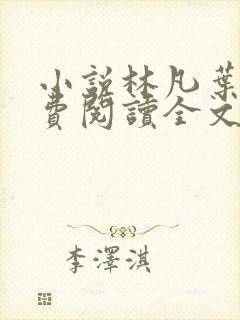 小說林凡葉
費閱讀全文
李澤淇